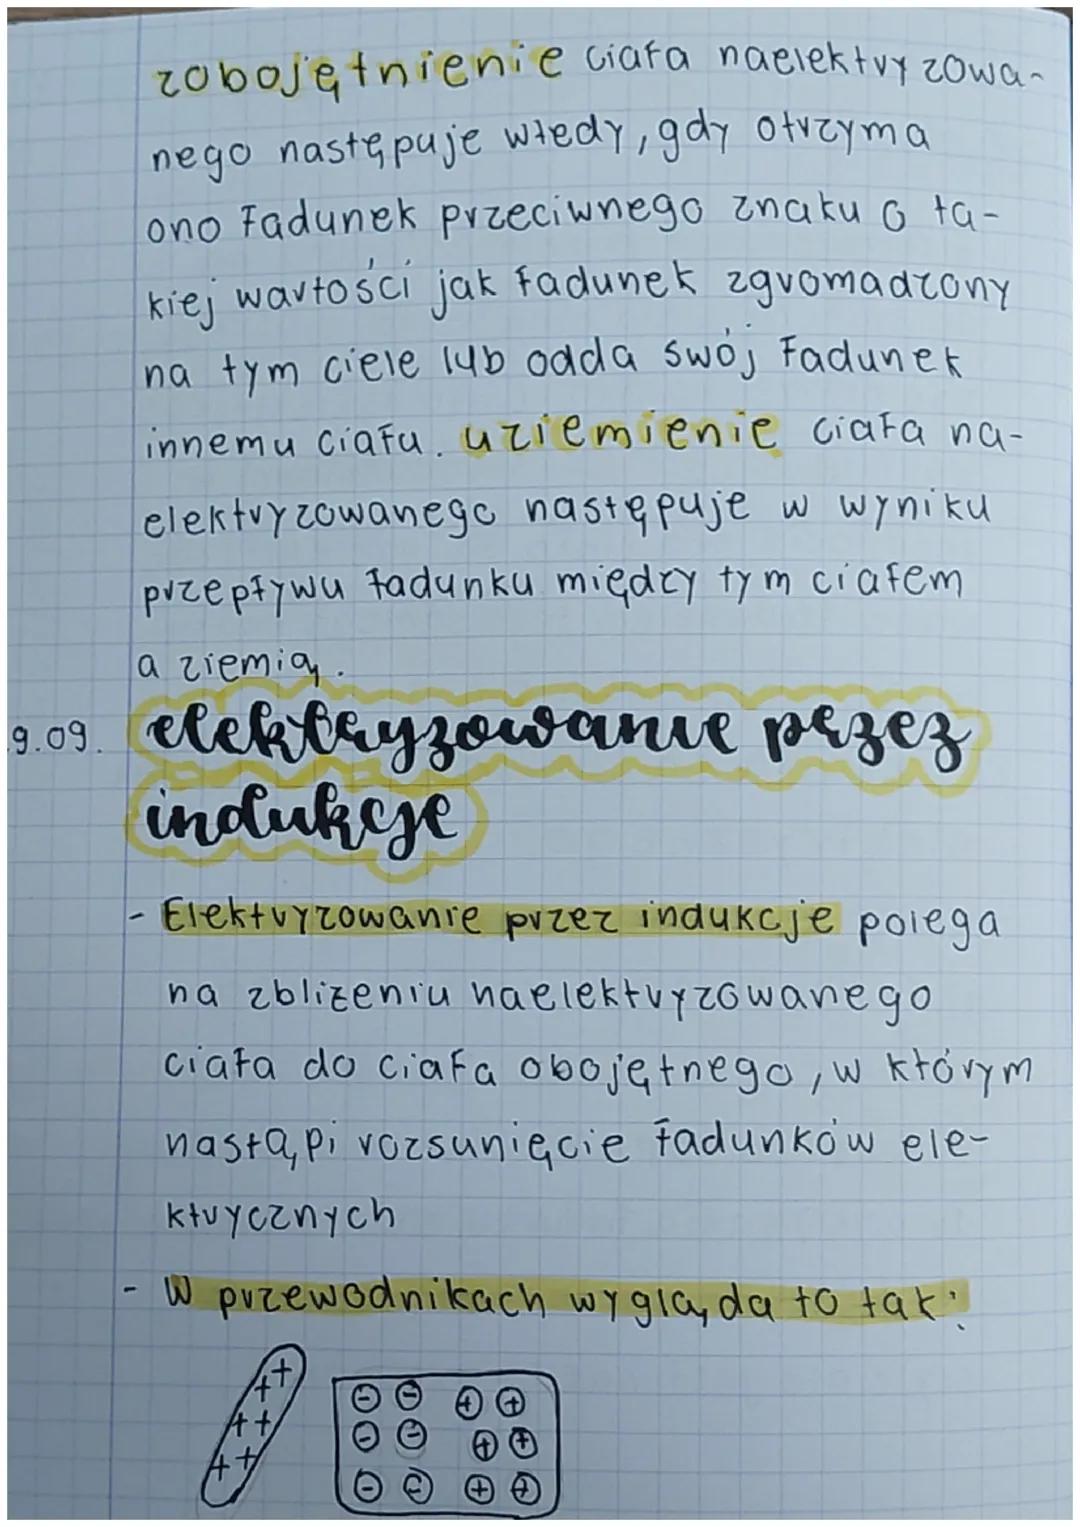 zobojętnienie ciała naelektryzowa-
nego następuje wtedy, gdy otrzyma
ono ładunek przeciwnego znaku o ta-
kiej wartości jak ładunek zgromadzony
na tym ciele lub odda swój ładunek
innemu ciału. uziemienie ciała na-
elektryzowanego następuje w wyniku
przepływu ładunku między tym ciałem
a ziemią.
9.09. elektryzowanie przez
indukcje
- Elektryzowanie przez indukcje polega
na zbliżeniu naelektryzowanego
ciała do ciała obojętnego, w którym
nastąpi rozsunięcie ładunków ele-
ktrycznych
- W przewodnikach wygląda to tak:
++ - - + +
++ - - + +
++ - - + +